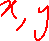 x, y